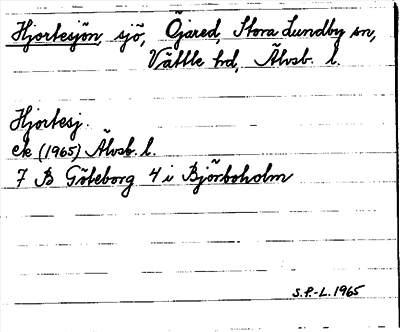 Hjortesjön, sjö, Öjared Stora Lundby sn,
Vättle hd, Älvsb. l.
Hjortesj.
ek (1965) Älvsb. l.
7 B Göteborg 4 i Björboholm
S.P.-L. 1965